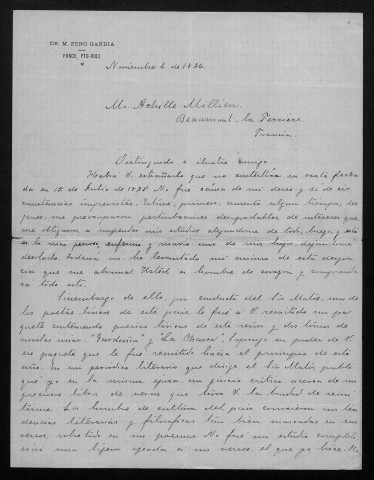 DR. M. ZENO GANDIA
PONCE, PTO-RICO
Noviembre 2 de 1896.
Mr. Achille Millien
Beaumont-la Ferriere
Francia
Distinguido e ilustre amigo.
Habrá V. extrañado que no contestara su carta fecha-
da en 15 de Julio de 1895. No fué cosa de mi deseo y si de cir-
cunstancias imprevistas. Estuve, primero, ausente algun tiempo; des-
pues me preocuparon perturbaciones desagradables de intereses que
me obligaron a suspender mis estudios alejandome de todo; luego, y esto
es lo mas penoso, enfermó y murió uno de mis hijos, dejandome
desolado. Todavia no he levantado mi animo de esta desgra-
cia que me abruma. Usted es hombre de corazon y comprende-
rá todo esto.
Sinembargo de ello, por conducto del Sr Matos, uno de
los poetas liricos de este pais le fué a V. remitido un pa-
quete conteniendo poesias liricas de este señor y dos tomos de
novelas mias: "Garduña" y "La Charca". Supongo en poder de V.
ese paquete que le fué remitido hacia el principio de este
año. En un periodico literario que dirige el Sr Matos publi-
qué yo en la misma epoca un juicio critico acerca de sus
preciosos libros de versos que tuvo V. la bondad de remi-
tirme. Los hombres de cultura del pais conocieron sus ten-
dencias literarias y filosoficas tan bien marcadas en sus
versos, sobretodo en sus poemas. No fué un estudio completo,
sino una ligera ojeada a sus versos el que yo hice.